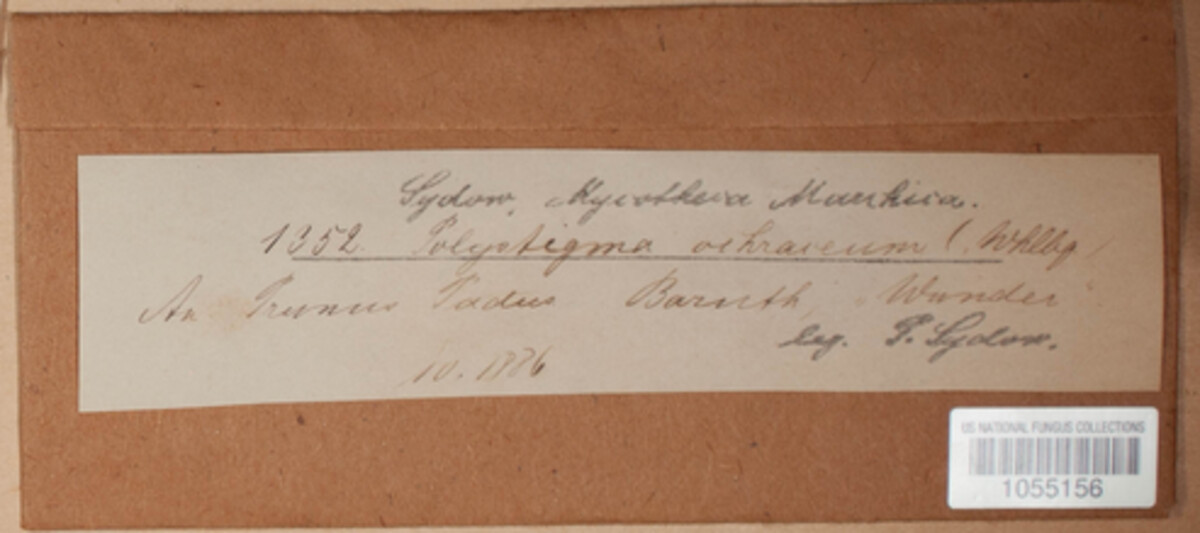 Sydow, Mycotheca Marchica.
1352. Polystigma ochraceum (Whlbg)
An Prunus Padus Baruth, Wunder
leg. P. Sydow.
10. 1886
US NATIONAL FUNGUS COLLECTIONS
1055156